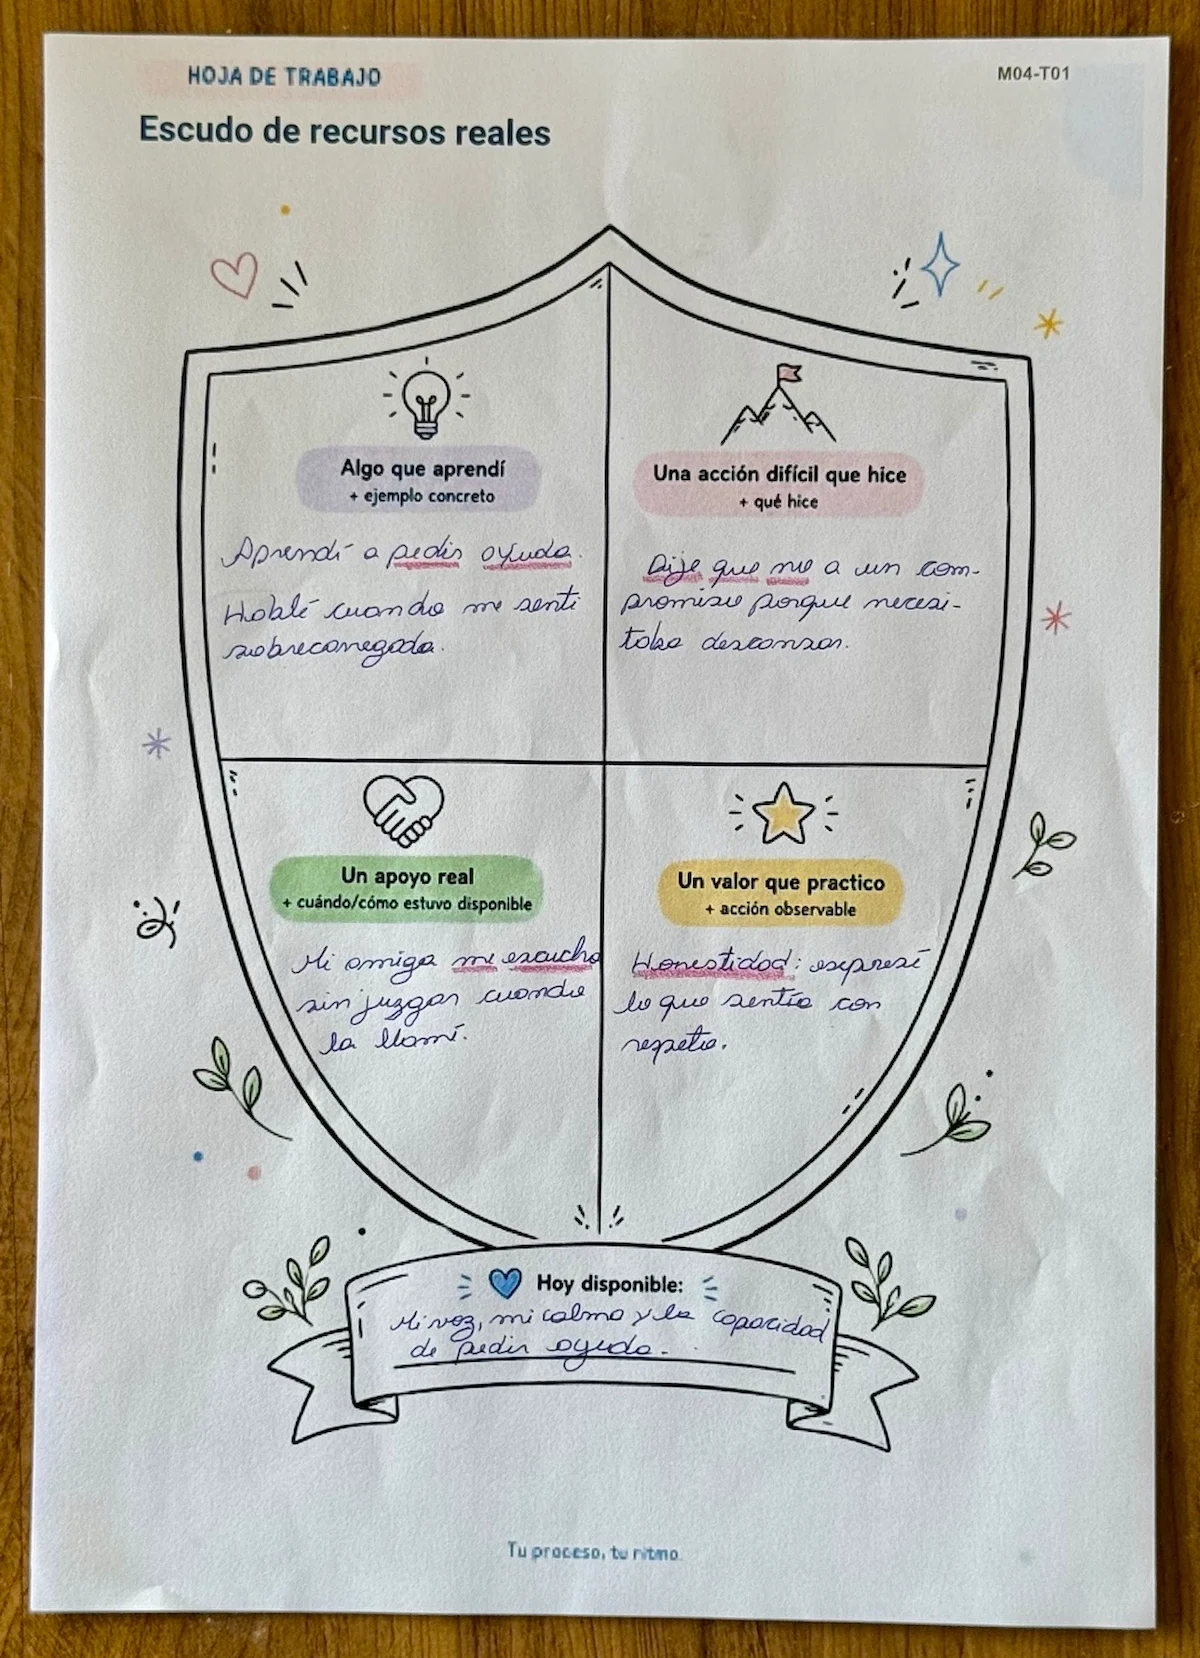 HOJA DE TRABAJO
M04-T01
Escudo de recursos reales
Algo que aprendí
+ ejemplo concreto
Aprendí a pedir ayuda.
Hablé cuando me sentí
sobrecargada.
Una acción difícil que hice
+ qué hice
Dije que no a un com-
promiso porque necesi-
taba descansar.
Un apoyo real
+ cuándo/cómo estuvo disponible
Mi amiga me escuchó
sin juzgar cuando
la llamé.
Un valor que practico
+ acción observable
Honestidad: expresé
lo que sentía con
respeto.
Hoy disponible:
Mi voz, mi calma y la capacidad
de pedir ayuda.
Tu proceso, tu ritmo.